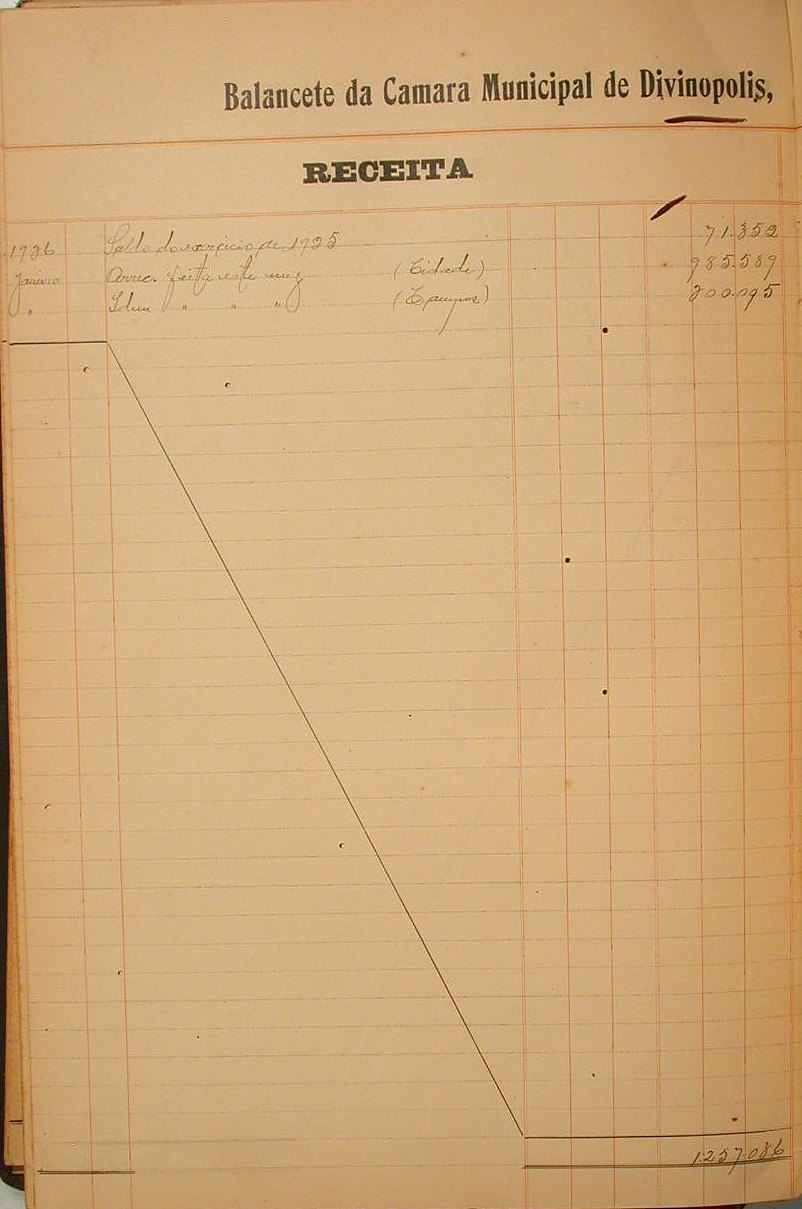 Balancete da Camara Municipal de Divinopolis,
RECEITA
1926 Saldo do exercicio de 1925 71.352
Janeiro Arrec. feita este mez (Cidade) 985.589
" Idem " " " 200.095
1.257.036